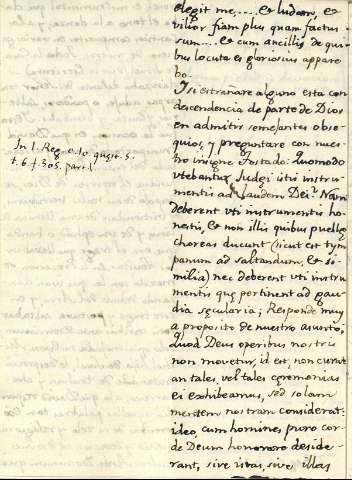 elegit me.... et ludam, et
vilior fiam plus quam factus
sum.... et cum ancillis de qui-
bus locuta es gloriosus appare
bo.
Y si estrañare alguno esta con
descendencia de parte de Dios
en admitir semejantes obse-
quios, y preguntare con nues-
tro insigne Tostado: Quomodo
vtebantur Judęi istis instru-
mentis ad laudem Dei? Nam
deberent vti instrumentis ho-
nestis, et non illis quibus puellę
choreas ducunt (sicut est tym
panum ad saltandum, et si-
milia) nec deberent vti instru
mentis quę pertinent ad gau-
dia sęcularia; Responde muy
a proposito de nuestro asunto,
Quod Deus operibus nostris
non movetur, id est, non curat
an tales, vel tales ceremonias
ei exhibeamus, sed solam
mentem nostram considerat:
ideo, cum homines puro cor-
de Deum honorare deside-
rant, sive istas, sive illas
In 1. Reg. c. 10. quęst. 5.
t. 6. f. 305. par. 1.